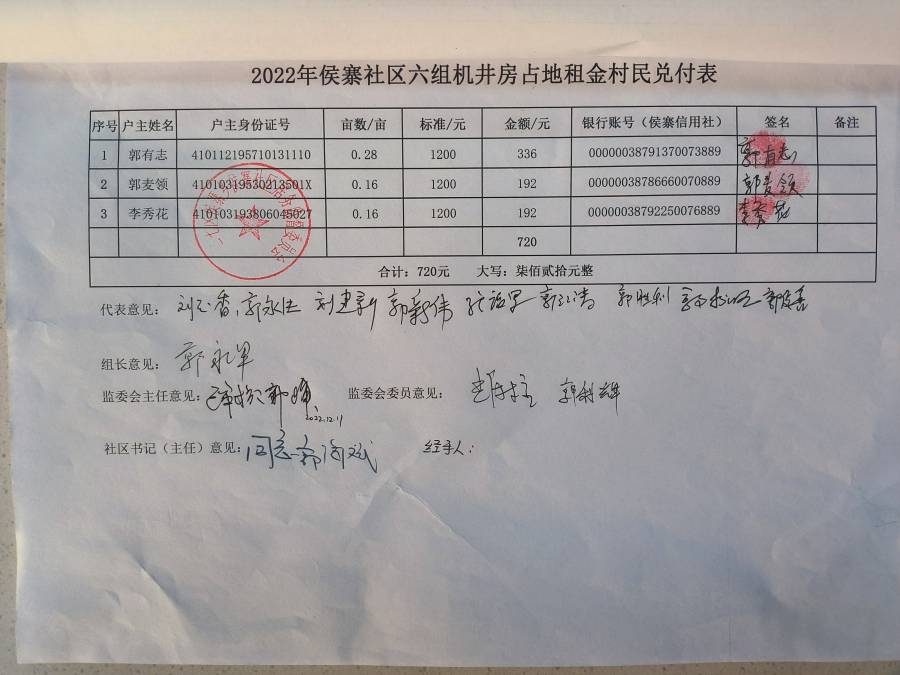 2022年侯寨社区六组机井房占地租金村民兑付表
序号 户主姓名 户主身份证号 亩数/亩 标准/元 金额/元 银行账号（侯寨信用社） 签名 备注
1 郭有志 410112195710131110 0.28 1200 336 00000038791370073889 郭有志
2 郭麦领 41010319530213501X 0.16 1200 192 00000038786660070889 郭麦领
3 李秀花 410103193806045027 0.16 1200 192 00000038792250076889 李秀花
720
合计：720元 大写：柒佰贰拾元整
代表意见： 郭永 刘建新 郭新伟 郭胜利
组长意见： 郭永军
监委会主任意见： 监委会委员意见： 郭利雄
2022.12.11
社区书记（主任）意见： 同意 郭 经手人：